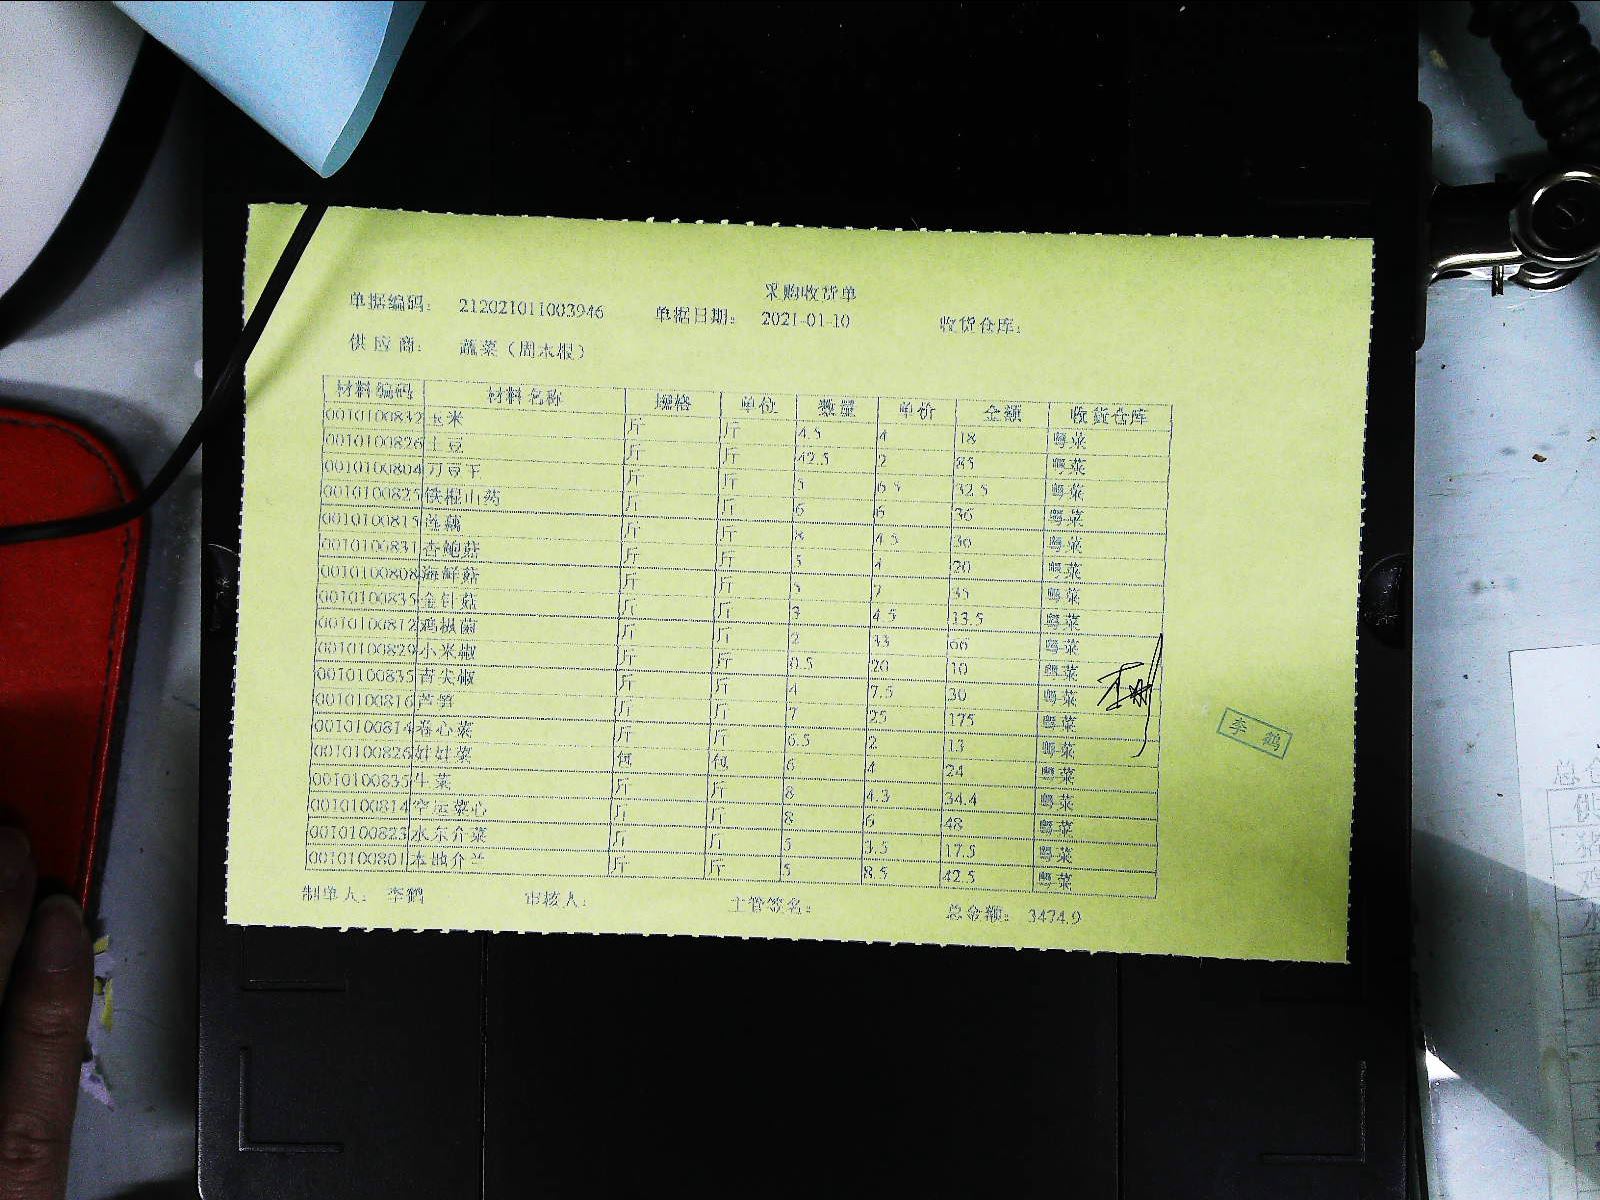 采购收货单
单据编码： 212021011003946 单据日期： 2021-01-10 收货仓库：
供应商： 蔬菜（周木根）
材料编码 材料名称 规格 单位 数量 单价 金额 收货仓库
0010100832 玉米 斤 斤 4.5 4 18 粤菜
0010100826 土豆 斤 斤 42.5 2 85 粤菜
0010100804 刀豆王 斤 斤 5 6.5 32.5 粤菜
0010100825 铁棍山药 斤 斤 6 6 36 粤菜
0010100815 莲藕 斤 斤 8 4.5 36 粤菜
0010100831 杏鲍菇 斤 斤 5 4 20 粤菜
0010100808 海鲜菇 斤 斤 5 7 35 粤菜
0010100835 金针菇 斤 斤 3 4.5 13.5 粤菜
0010100812 鸡枞菌 斤 斤 2 33 66 粤菜
0010100829 小米椒 斤 斤 0.5 20 10 粤菜
0010100835 青尖椒 斤 斤 4 7.5 30 粤菜
0010100816 芦笋 斤 斤 7 25 175 粤菜
0010100814 卷心菜 斤 斤 6.5 2 13 粤菜
0010100826 娃娃菜 包 包 6 4 24 粤菜
0010100835 生菜 斤 斤 8 4.3 34.4 粤菜
0010100814 空运菜心 斤 斤 8 6 48 粤菜
0010100823 水东介菜 斤 斤 5 3.5 17.5 粤菜
0010100801 本地介兰 斤 斤 5 8.5 42.5 粤菜
李鹤
制单人： 李鹤 审核人： 主管签名： 总金额： 3474.9